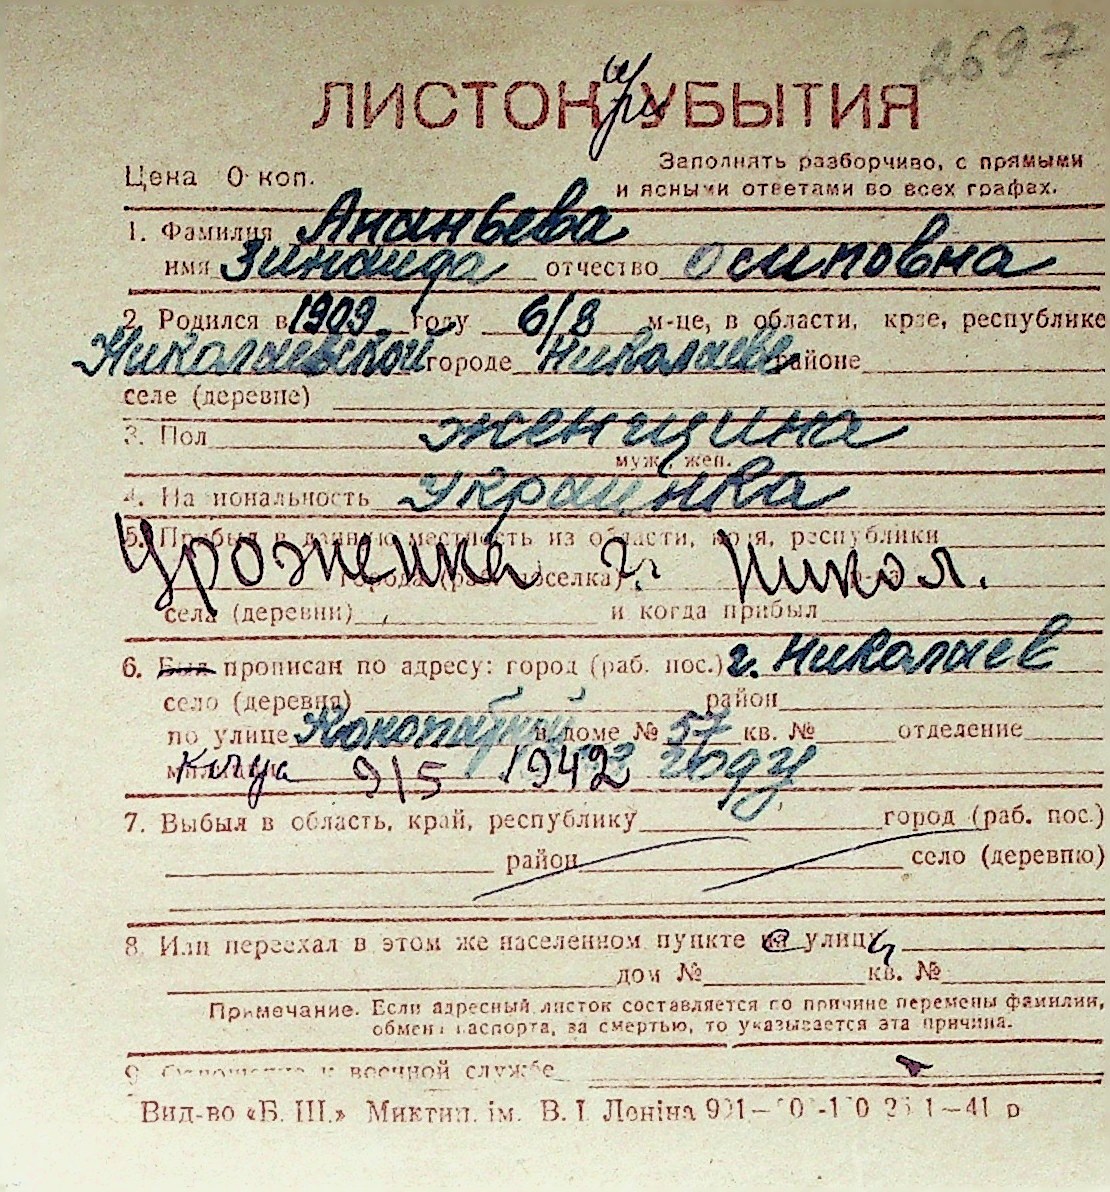 2697
ЛИСТОК при УБЫТИЯ
Цена 0 коп.
Заполнять разборчиво, с прямыми
и ясными ответами во всех графах.
1. Фамилия Ананьева
имя Зинаида отчество Осиповна
2. Родился в 1909 году 6/8 м-це, в области, крае, республике
Николаевской городе Николаеве районе
селе (деревне)
3. Пол женщина
муж., жен.
4. Национальность Украинка
5. Прибыл в данную местность из области, края, республики
Уроженка г. Никол.
города (раб. поселка)
села (деревни) и когда прибыл
6. Был прописан по адресу: город (раб. пос.) г. Николаев
село (деревня) район
по улице в доме № 57 кв. № отделение
милиции 9/5 1942 году
7. Выбыл в область, край, республику город (раб. пос.)
район село (деревню)
8. Или переехал в этом же населенном пункте с улицы
дом № кв. №
Примечание. Если адресный листок составляется по причине перемены фамилии,
обмена паспорта, за смертью, то указывается эта причина.
9. Отношение к военной службе
Вид-во «Б. Ш.» Миктип. ім. В. І. Леніна